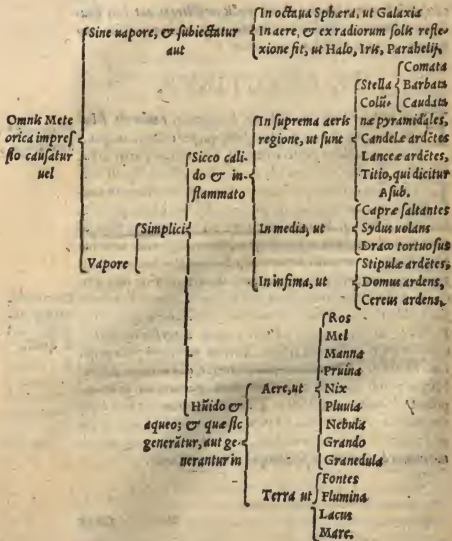 In octaua Sphæra, ut Galaxia
Sine uapore, & subiectatur aut
In aere, & ex radiorum solis refle-
xione fit, ut Halo, Iris, Parahelij.
Omnis Mete
orica impres
sio causatur
uel
Vapore
Simplici
Sicco cali-
do & in-
flammato
In suprema aeris
regione, ut sunt
Stella
Comata
Barbata
Caudata
Colū-
næ pyramidales,
Candelæ ardētes
Lanceæ ardētes,
Titio, qui dicitur
Asub.
In media, ut
Capræ saltantes
Sydus uolans
Draco tortuosus
In infima, ut
Stipulæ ardētes,
Domus ardens,
Cereus ardens,
Hūido &
aqueo; & quæ sic
generātur, aut ge-
nerantur in
Aere, ut
Ros
Mel
Manna
Pruina
Nix
Pluuia
Nebula
Grando
Granedula
Terra ut
Fontes
Flumina
Lacus
Mare.